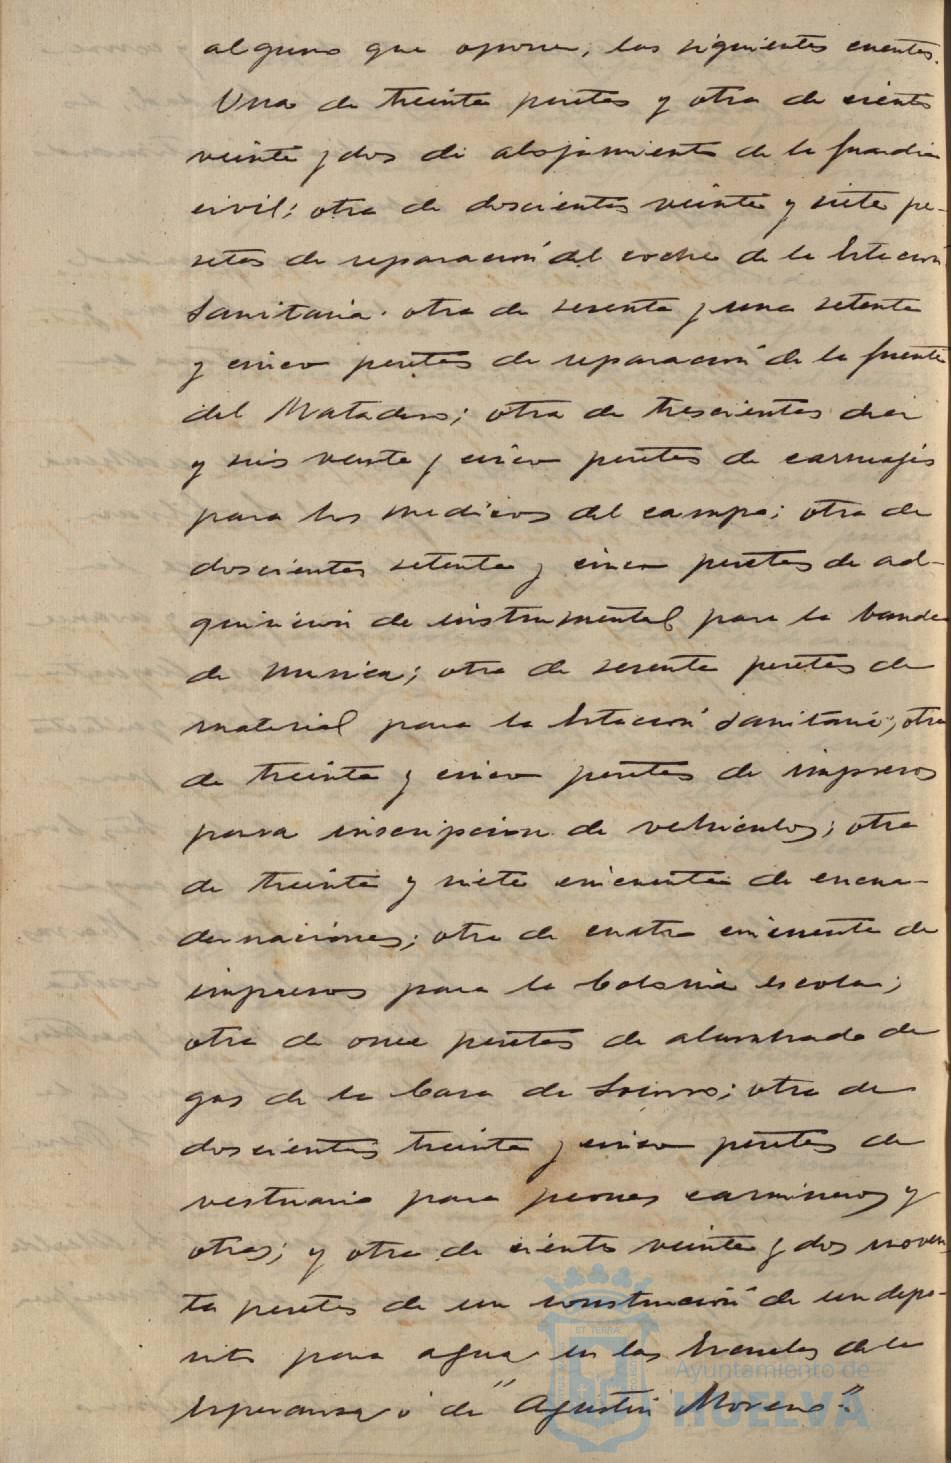 alguno que oponer, las siguientes cuentas.
Una de treinta pesetas y otra de ciento
veinte y dos de alojamiento de la Guardia
civil; otra de doscientas veinte y siete pe-
setas de reparación del coche de la Estación
Sanitaria. otra de sesenta y una setenta
y cinco pesetas de reparación de la fuente
del Matadero; otra de trescientas diez
y seis veinte y cinco pesetas de carruajes
para los medicos del campo; otra de
doscientas setenta y cinco pesetas de ad-
quisicion de instrumental para la banda
de musica; otra de sesenta pesetas de
material para la Estación Sanitaria; otra
de treinta y cinco pesetas de impresos
para inscripcion de vehiculos; otra
de treinta y siete cincuenta de encua-
dernaciones; otra de cuatro cincuenta de
impresos para la Colonia escolar;
otra de once pesetas de alumbrado de
gas de la Casa de Socorro; otra de
doscientas treinta y cinco pesetas de
vestuario para peones camineros y
otros; y otra de ciento veinte y dos noven-
ta pesetas de un construcción de un depo-
sito para agua en las Escuelas de la
Esperanza o de "Agustin Moreno".
Ayuntamiento de
HUELVA